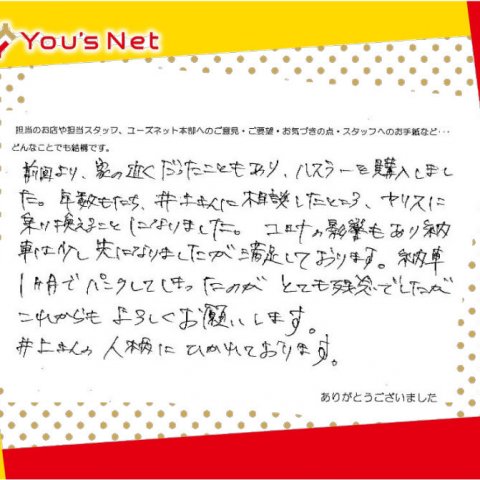 You's Net
担当のお店や担当スタッフ、ユーズネット本部へのご意見・ご要望・お気づきの点・スタッフへのお手紙など・・・
どんなことでも結構です。
前回より、家の近くだったこともあり、ハスラーを購入しまし
た。年数もたち、井上さんに相談したところ、ヤリスに
乗り換えることになりました。コロナの影響もあり納
車は少し先になりましたが満足しております。納車
1ヶ月でパンクしてしまったのがとても残念でしたが
これからもよろしくお願いします。
井上さんの人柄にひかれております。
ありがとうございました